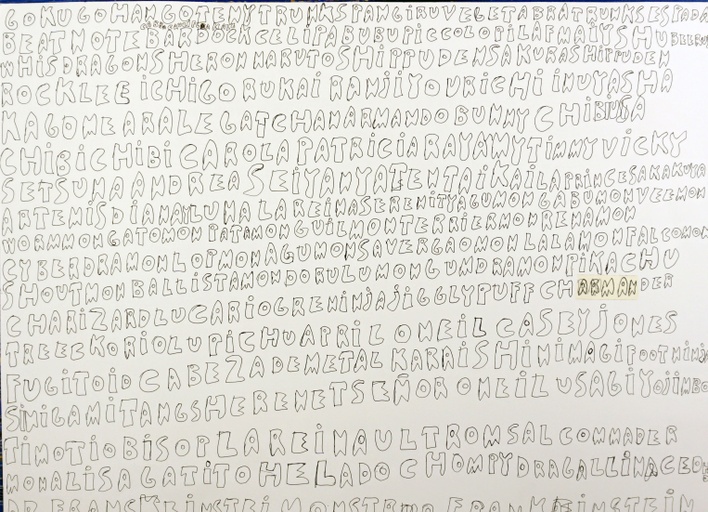 GOKUGOHANGOTENYTRUNKSPANGIRUVEGETABRATRUNKSESPADA
BEATNOTEBARDOCKCELIPABUBUPICCOLOPILAFMAIYSHU
WHISDRAGONSHERONNARUTOSHIPPUDENSAKURASHIPPUDEN
ROCKLEEICHIGORUKAIRANJIYOURICHIINUYASHA
KAGOMEARALEGATCHANARMANDOBUNNYCHIBIUSA
CHIBICHIBICAROLAPATRICIARAYAMYTIMMYVICKY
SETSUNAANDREASEIYAYATENTAIKAILAPRINCESAKAKUYA
ARTEMISDIANAYLUNALAREINASERENITYAGUMONGABUMONVEEMON
WORMMONGATOMONPATAMONGUILMONTERRIERMONRENAMON
CYBERDRAMONLOPMONAGUMONSAVERGAOMONLALAMONFALCOMON
SHOUTMONBALLISTAMONDORULUMONGUMDRAMONPIKACHU
CHARIZARDLUCARIOGRENINJAJIGGLYPUFFCHARMANDER
TREECKORIOLUPICHUAPRILONEILCASEYJONES
FUGITOIDCABEZADEMETALKARAISHINIMAGIFOOTNINJA
SINIGAMITANGSHERENETSEÑORONEILUSAGIYOJIMBO
TIMOTIOBISOPLAREINAULTROMSALCOMMADER
MONALISAGATITOHELADOCHOMPYDRAGALLINACED